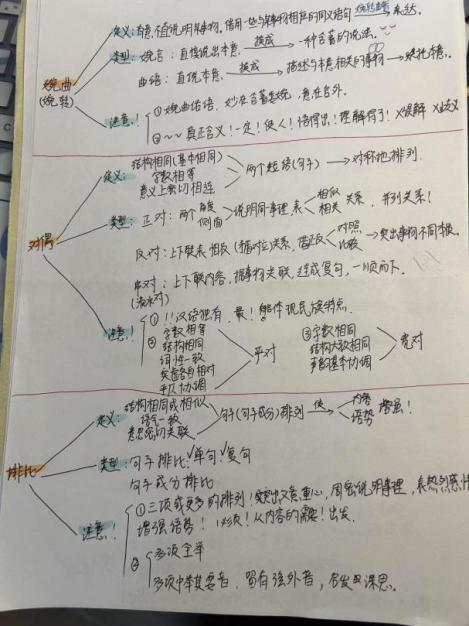 婉曲
(婉转)
定义:有意不直说明某事物。借用一些与某事物相应的同义语句 婉转曲折 表达。
类型:婉言:直接说出本意 换成 一种含蓄的说法。
曲语:直说本意 换成 描述与本意相关的事物 烘托本意。
注意!
①婉曲话语,妙在含蓄委婉,意在言外。
②~~真正含义!一定!使人!悟得出!理解得了!X误解 X歧义
对偶
定义:
结构相同(基本相同)
字数相等
意义上密切相连
两个短语(句子)→对称地排列.
类型:正对:两个角度 侧面 说明同事理,表 相似 相关 关系,并列关系!
反对:上下联表相反(相对立)关系,借正反 对照 比较 →突出事物不同
串对:上下联内容,据事物关联,连成复句,一顺而下。
(流水对)
注意:
①!!汉语独有,最!能体现民族特点.
②字数相等
结构相同
词性一致
实虚各自相对
平仄协调
严对
③字数相同
结构大致相同
基本协调
宽对
排比
定义:
结构相同或相似
语气一致
意思密切关联
句子(句子成分)排列 使 内容 语势 增强!
类型:句子排比:√单句√复句
句子成分排比
注意:
①三项或更多的排列!突出文章重心,周密说明事理,表热烈感情
增强语势!必须!从内容的需要!出发.
②多项全举
多项中举其要者,留有弦外音,启发思。